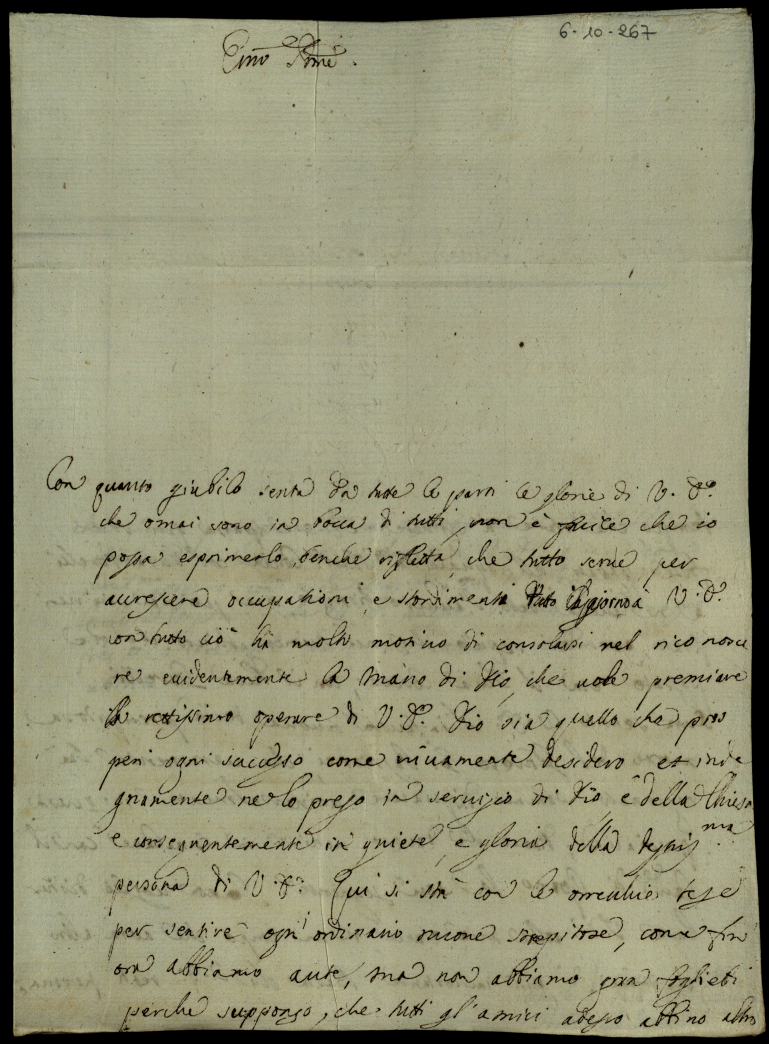 6-10-267
Emo Pnne.
Con quanto giubilo senta da tutte le parti le glorie di V. Ea.
che omai sono in bocca di tutti, non è facile che io
possa esprimerlo, benche rifletta, che tutto serue per
accrescere occupationi, e stordimenti a V. Ea.
con tutto ciò hà molti motiuo di consolarsi nel riconosce
re euidentemente la Mano di Dio, che uole premiare
rettissimo operare di V. Ea. Dio sia quello che pros
peri ogni successo come uiuamente desidero et inde
gnamente ne lo prego in seruizio di Dio e della Chiesa
e conseguentemente in quiete, e gloria della degniss.ma
persona di V. Ea. Qui si stà con le orrecchie tese
per sentire ogn'ordinario nuoue strepitose, come fin
ora abbiamo aute, ma non abbiamo gran foglietti
perche suppongo, che tutti gl'amici adesso abbino altro